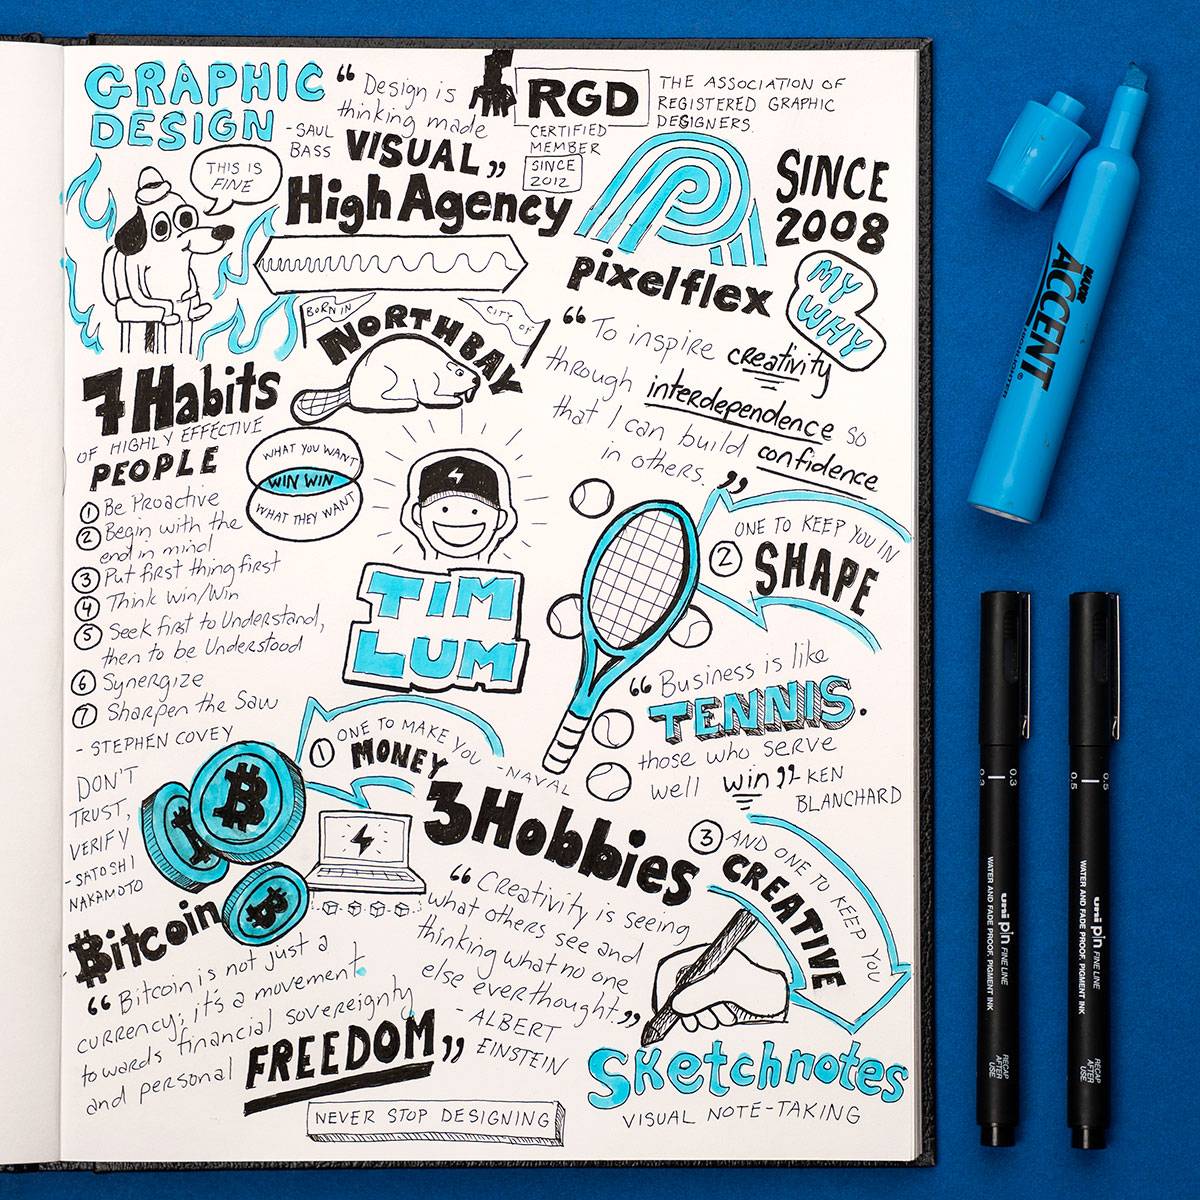 GRAPHIC
DESIGN
“ Design is
thinking made
VISUAL ”
- SAUL
BASS
RGD
CERTIFIED
MEMBER
SINCE
2012
THE ASSOCIATION OF
REGISTERED GRAPHIC
DESIGNERS.
THIS IS
FINE
High Agency
SINCE
2008
pixelflex
MY
WHY
“ To inspire creativity
through interdependence so
that I can build confidence
in others. ”
BORN IN
CITY OF
NORTH BAY
7 Habits
OF HIGHLY EFFECTIVE
PEOPLE
1 Be Proactive
2 Begin with the
end in mind
3 Put first thing first
4 Think Win/Win
5 Seek first to Understand,
then to be Understood
6 Synergize
7 Sharpen the Saw
- STEPHEN COVEY
WHAT YOU WANT
WIN WIN
WHAT THEY WANT
TIM
LUM
2 ONE TO KEEP YOU IN
SHAPE
“ Business is like
TENNIS.
those who serve
well win ” KEN
BLANCHARD
1 ONE TO MAKE YOU
MONEY
- NAVAL
3 Hobbies
3 AND ONE TO KEEP YOU
CREATIVE
DON'T
TRUST,
VERIFY
- SATOSHI
NAKAMOTO
Bitcoin
“ Bitcoin is not just a
currency; it's a movement
towards financial sovereignty
and personal FREEDOM ”
“ Creativity is seeing
what others see and
thinking what no one
else ever thought. ”
- ALBERT
EINSTEIN
Sketchnotes
VISUAL NOTE-TAKING
NEVER STOP DESIGNING
MAJOR
ACCENT
HIGHLIGHTER
0.3
0.3
uni pin FINE LINE
WATER AND FADE PROOF, PIGMENT INK
RECAP
AFTER
USE
0.5
0.5
uni pin FINE LINE
WATER AND FADE PROOF, PIGMENT INK
RECAP
AFTER
USE